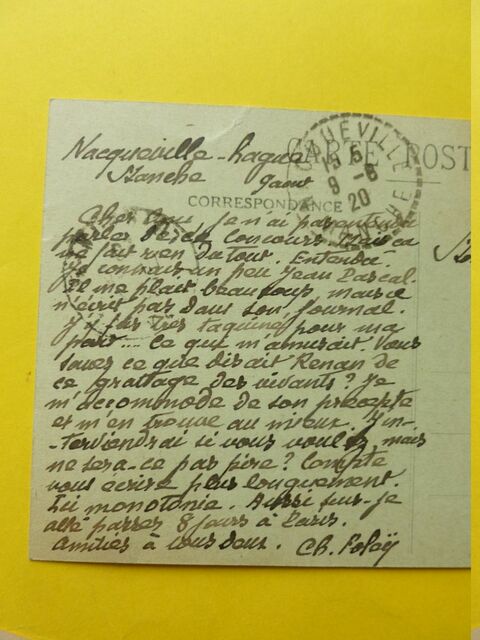 Nacqueville-hague
Manche 9 aout
CARTE POST
QUEVILLE
15 5
9 - 8
20
CORRESPONDANCE
Cher Ami, je n'ai pas entendu
parler de ce Concours. Mais ça
ne fait rien du tout. Entendu.
Je connais un peu Jean Pascal.
Il me plait beaucoup mais je
n'écrit pas dans son journal.
J'y fus très taquiné pour ma
part.... Ce qui m'amusait. Vous
savez ce que disait Renan de
ce grattage des vivants? Je
m'accommode de son précepte
et m'en trouve au mieux. J'in-
-terviendrai si vous voulez mais
ne sera-ce pas pire? Compte
vous écrire plus longuement.
Ici monotonie. Aussi suis-je
allé passer 8 jours à Paris.
Amitiés à tous deux. Ch. Foleÿ